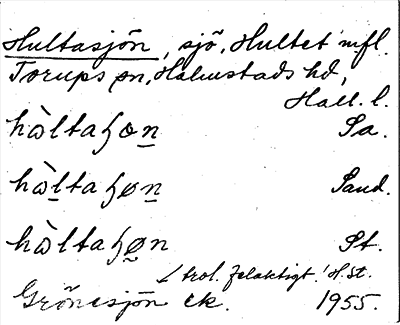 Hultasjön, sjö, Hultet m fl.
Torups sn, Halmstads hd,
Hall. l.
hàltaɧon Sa.
hàltaɧøn Sand.
hàltaɧøn St.
trol. felaktigt! H. St.
Grönesjön ek. 1955.